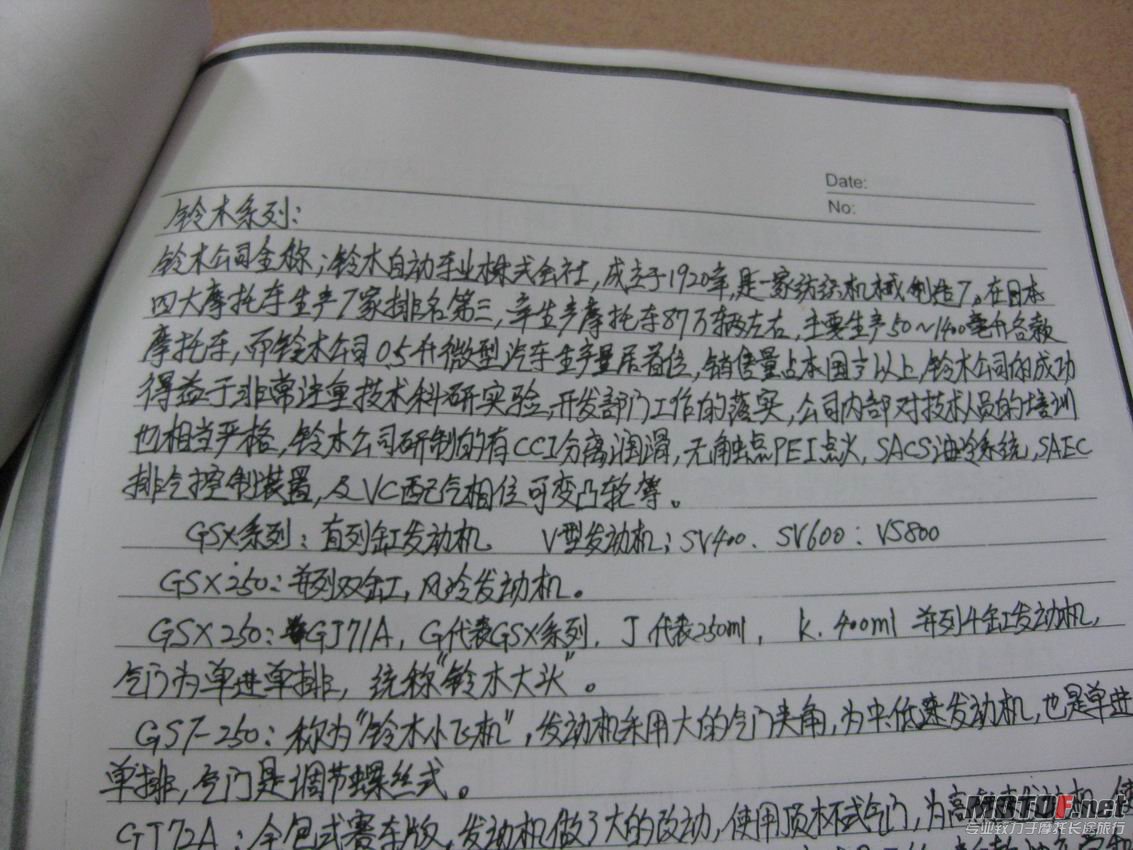 Date:
No:
铃木系列：
铃木公司全称；铃木自动车业株式会社，成立于1920年，是一家纺织机械制造厂。在日本
四大摩托车生产厂家排名第三，年生产摩托车87万辆左右，主要生产50～1400毫升各款
摩托车，而铃木公司0.5升微型汽车生产量居首位，销售量占本国产以上，铃木公司的成功
得益于非常注重技术科研实验，开发部门工作的落实，公司内部对技术人员的培训
也相当严格，铃木公司研制的有CCI分离润滑，无触点PEI点火，SACS油冷系统，SAEC
排气控制装置，及VC配气相位可变凸轮等。
GSX系列：直列缸发动机 V型发动机；SV400、SV600：VS800
GSX250：并列双缸，风冷发动机。
GSX250：GJ71A，G代表GSX系列．J代表250ml，k．400ml 并列4缸发动机，
气门为单进单排，统称"铃木大头"。
GST-250：称为"铃木小飞机"，发动机采用大的气门夹角，为中低速发动机，也是单进
单排，气门是调节螺丝式。
GJ72A：全包式赛车版，发动机做了大的改动，使用顶杯式气门，为高
MOTOF.net
专业致力于摩托长途旅行